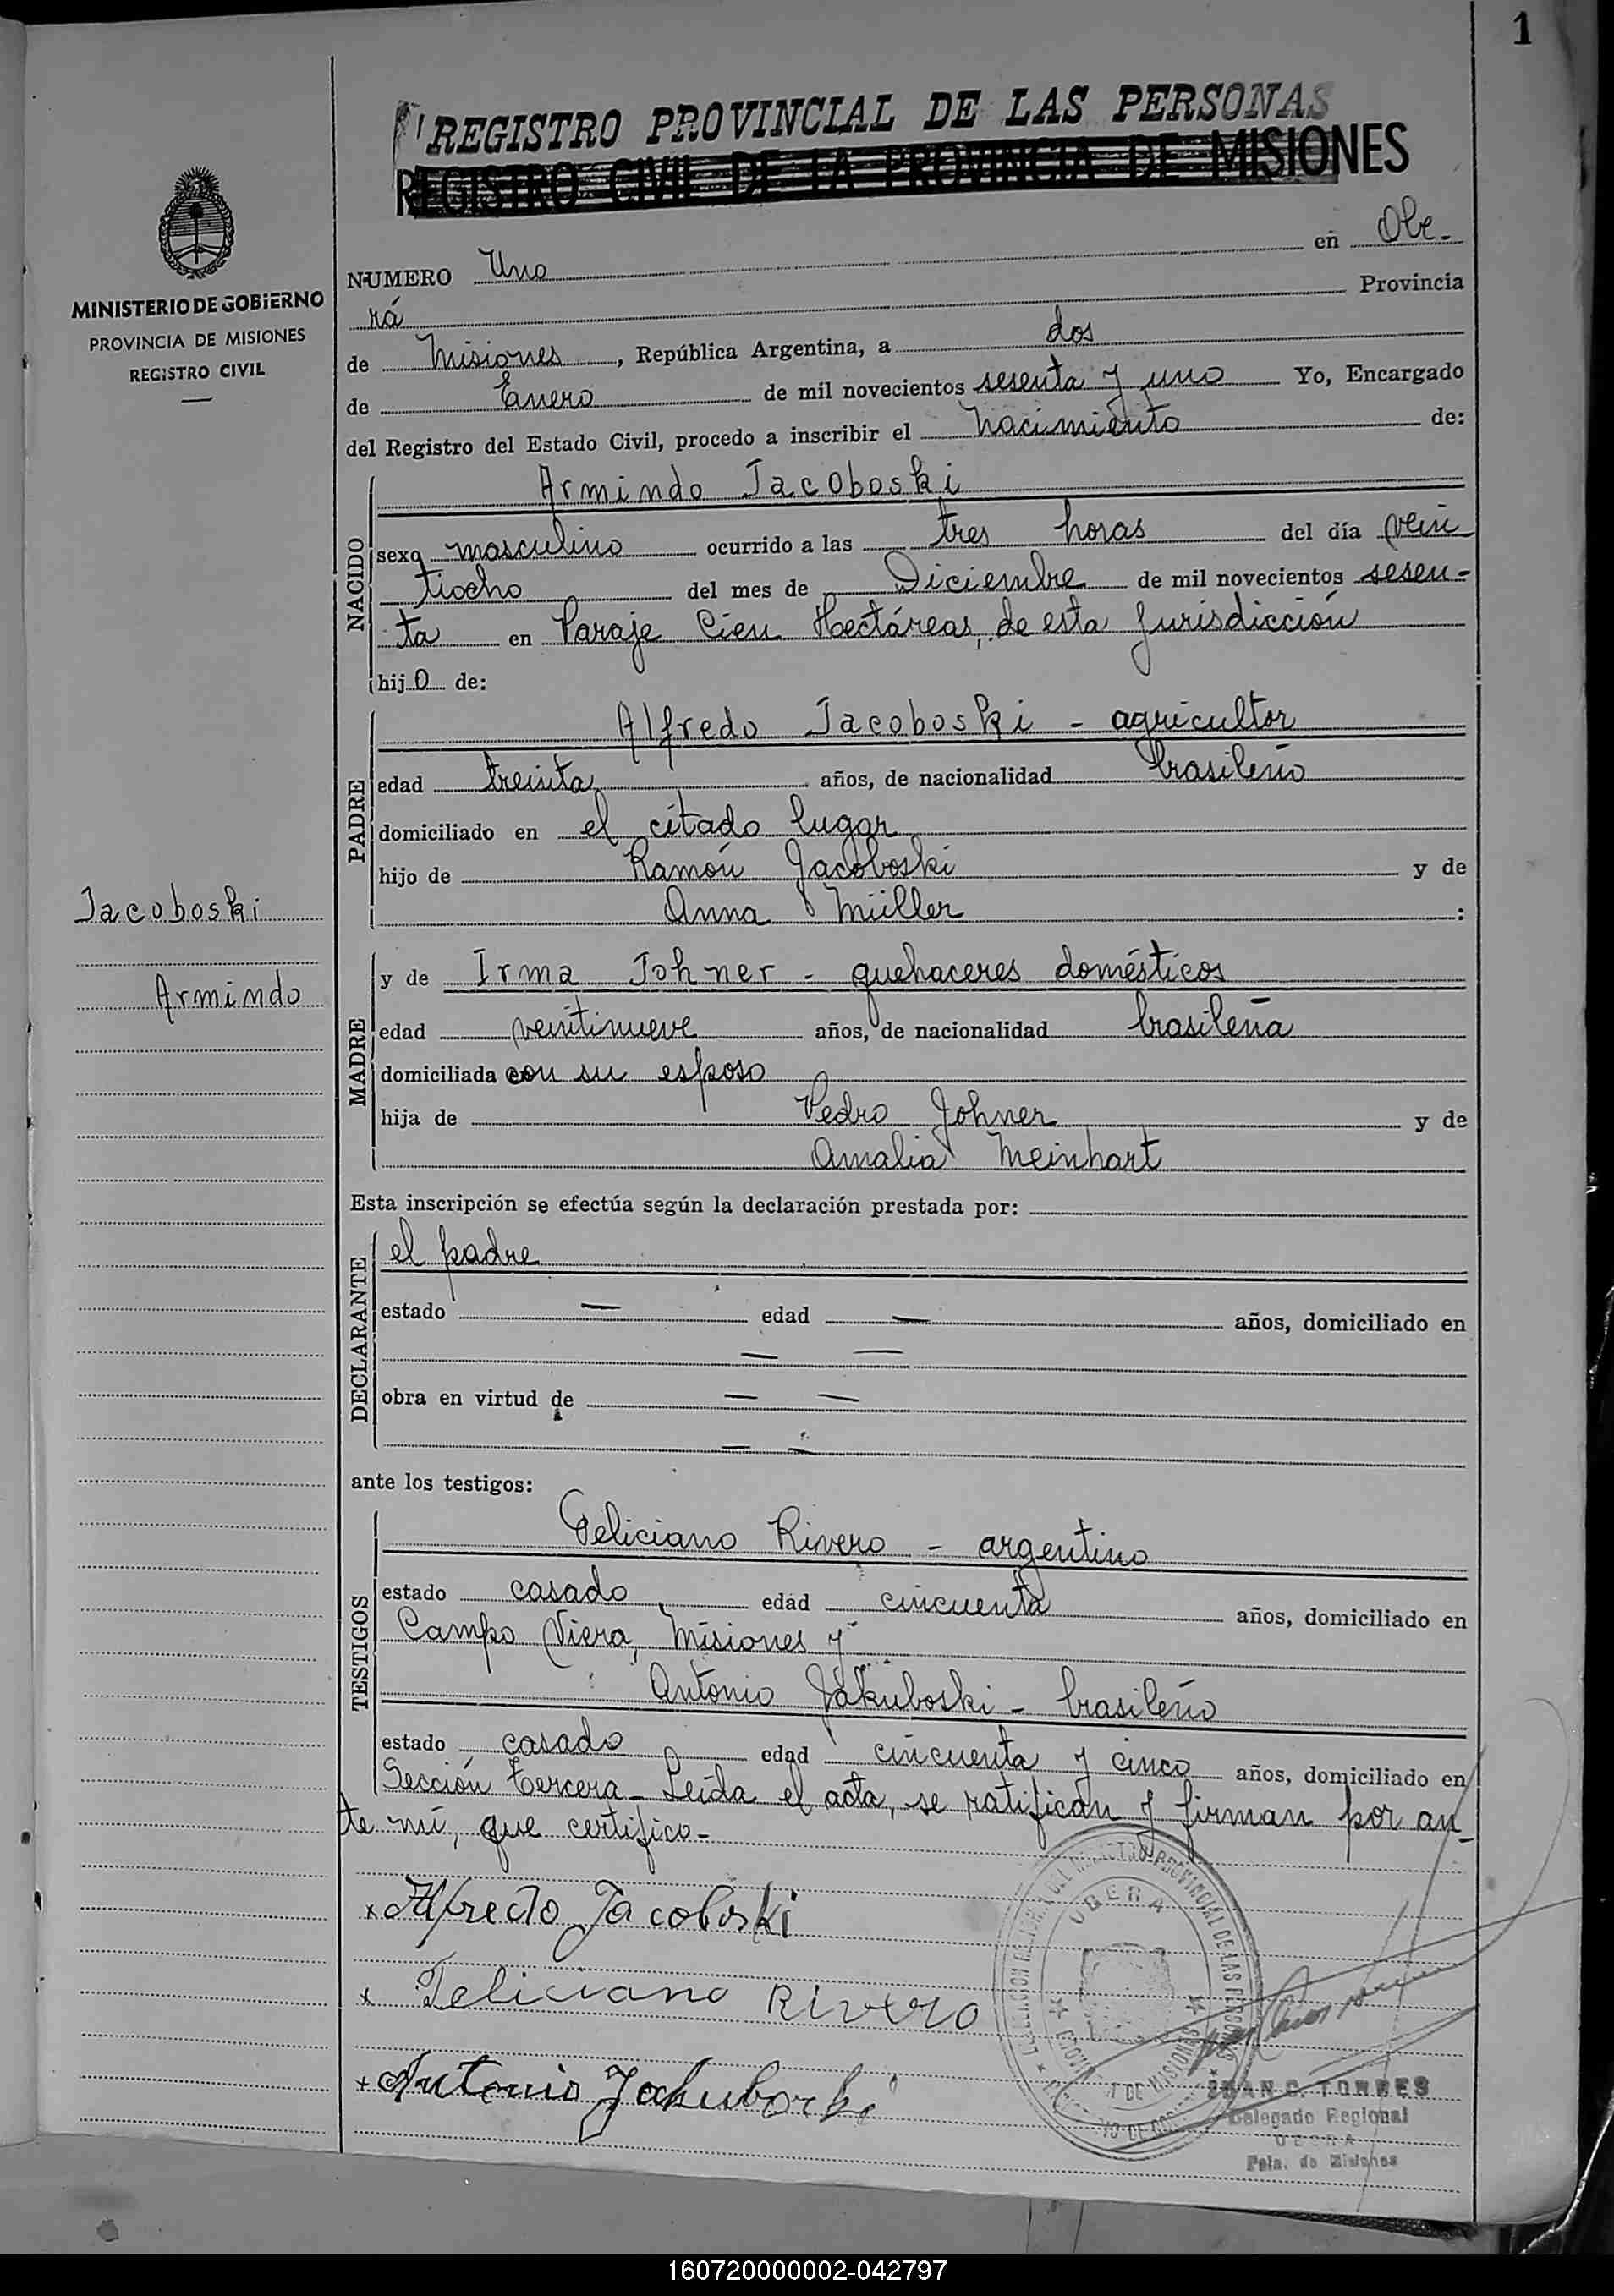 1
REGISTRO PROVINCIAL DE LAS PERSONAS
REGISTRO CIVIL DE LA PROVINCIA DE MISIONES
MINISTERIO DE GOBIERNO
PROVINCIA DE MISIONES
REGISTRO CIVIL
Jacoboski
Armindo
NUMERO Uno en Obe-
rá Provincia
de Misiones, República Argentina, a dos
de Enero de mil novecientos sesenta y uno Yo, Encargado
del Registro del Estado Civil, procedo a inscribir el nacimiento de:
NACIDO
Armindo Jacoboski
sexo masculino ocurrido a las tres horas del día vein
tiocho del mes de Diciembre de mil novecientos sesen-
ta en Paraje Cien Hectáreas, de esta Jurisdicción
hijo de:
PADRE
Alfredo Jacoboski - agricultor
edad treinta años, de nacionalidad brasileño
domiciliado en el citado lugar
hijo de Ramón Jacoboski y de
Anna Müller :
MADRE
y de Irma Johner - quehaceres domésticos
edad veintinueve años, de nacionalidad brasileña
domiciliada con su esposo
hija de Pedro Johner y de
Amalia Meinhart
Esta inscripción se efectúa según la declaración prestada por:
DECLARANTE
el padre
estado — edad — años, domiciliado en
— —
obra en virtud de — —
— —
ante los testigos:
TESTIGOS
Feliciano Rivero - argentino
estado casado edad cincuenta años, domiciliado en
Campo Viera, Misiones y
Antonio Jakuboski - brasileño
estado casado edad cincuenta y cinco años, domiciliado en
Sección tercera - Leída el acta, se ratifican y firman por an-
te mí, que certifico-
x Alfredo Jacoboski
x Feliciano Rivero
x Antonio Jakuboski
OBERA
JUAN C. TORRES
Delegado Regional
OBERA
Pcia. de Misiones
160720000002-042797